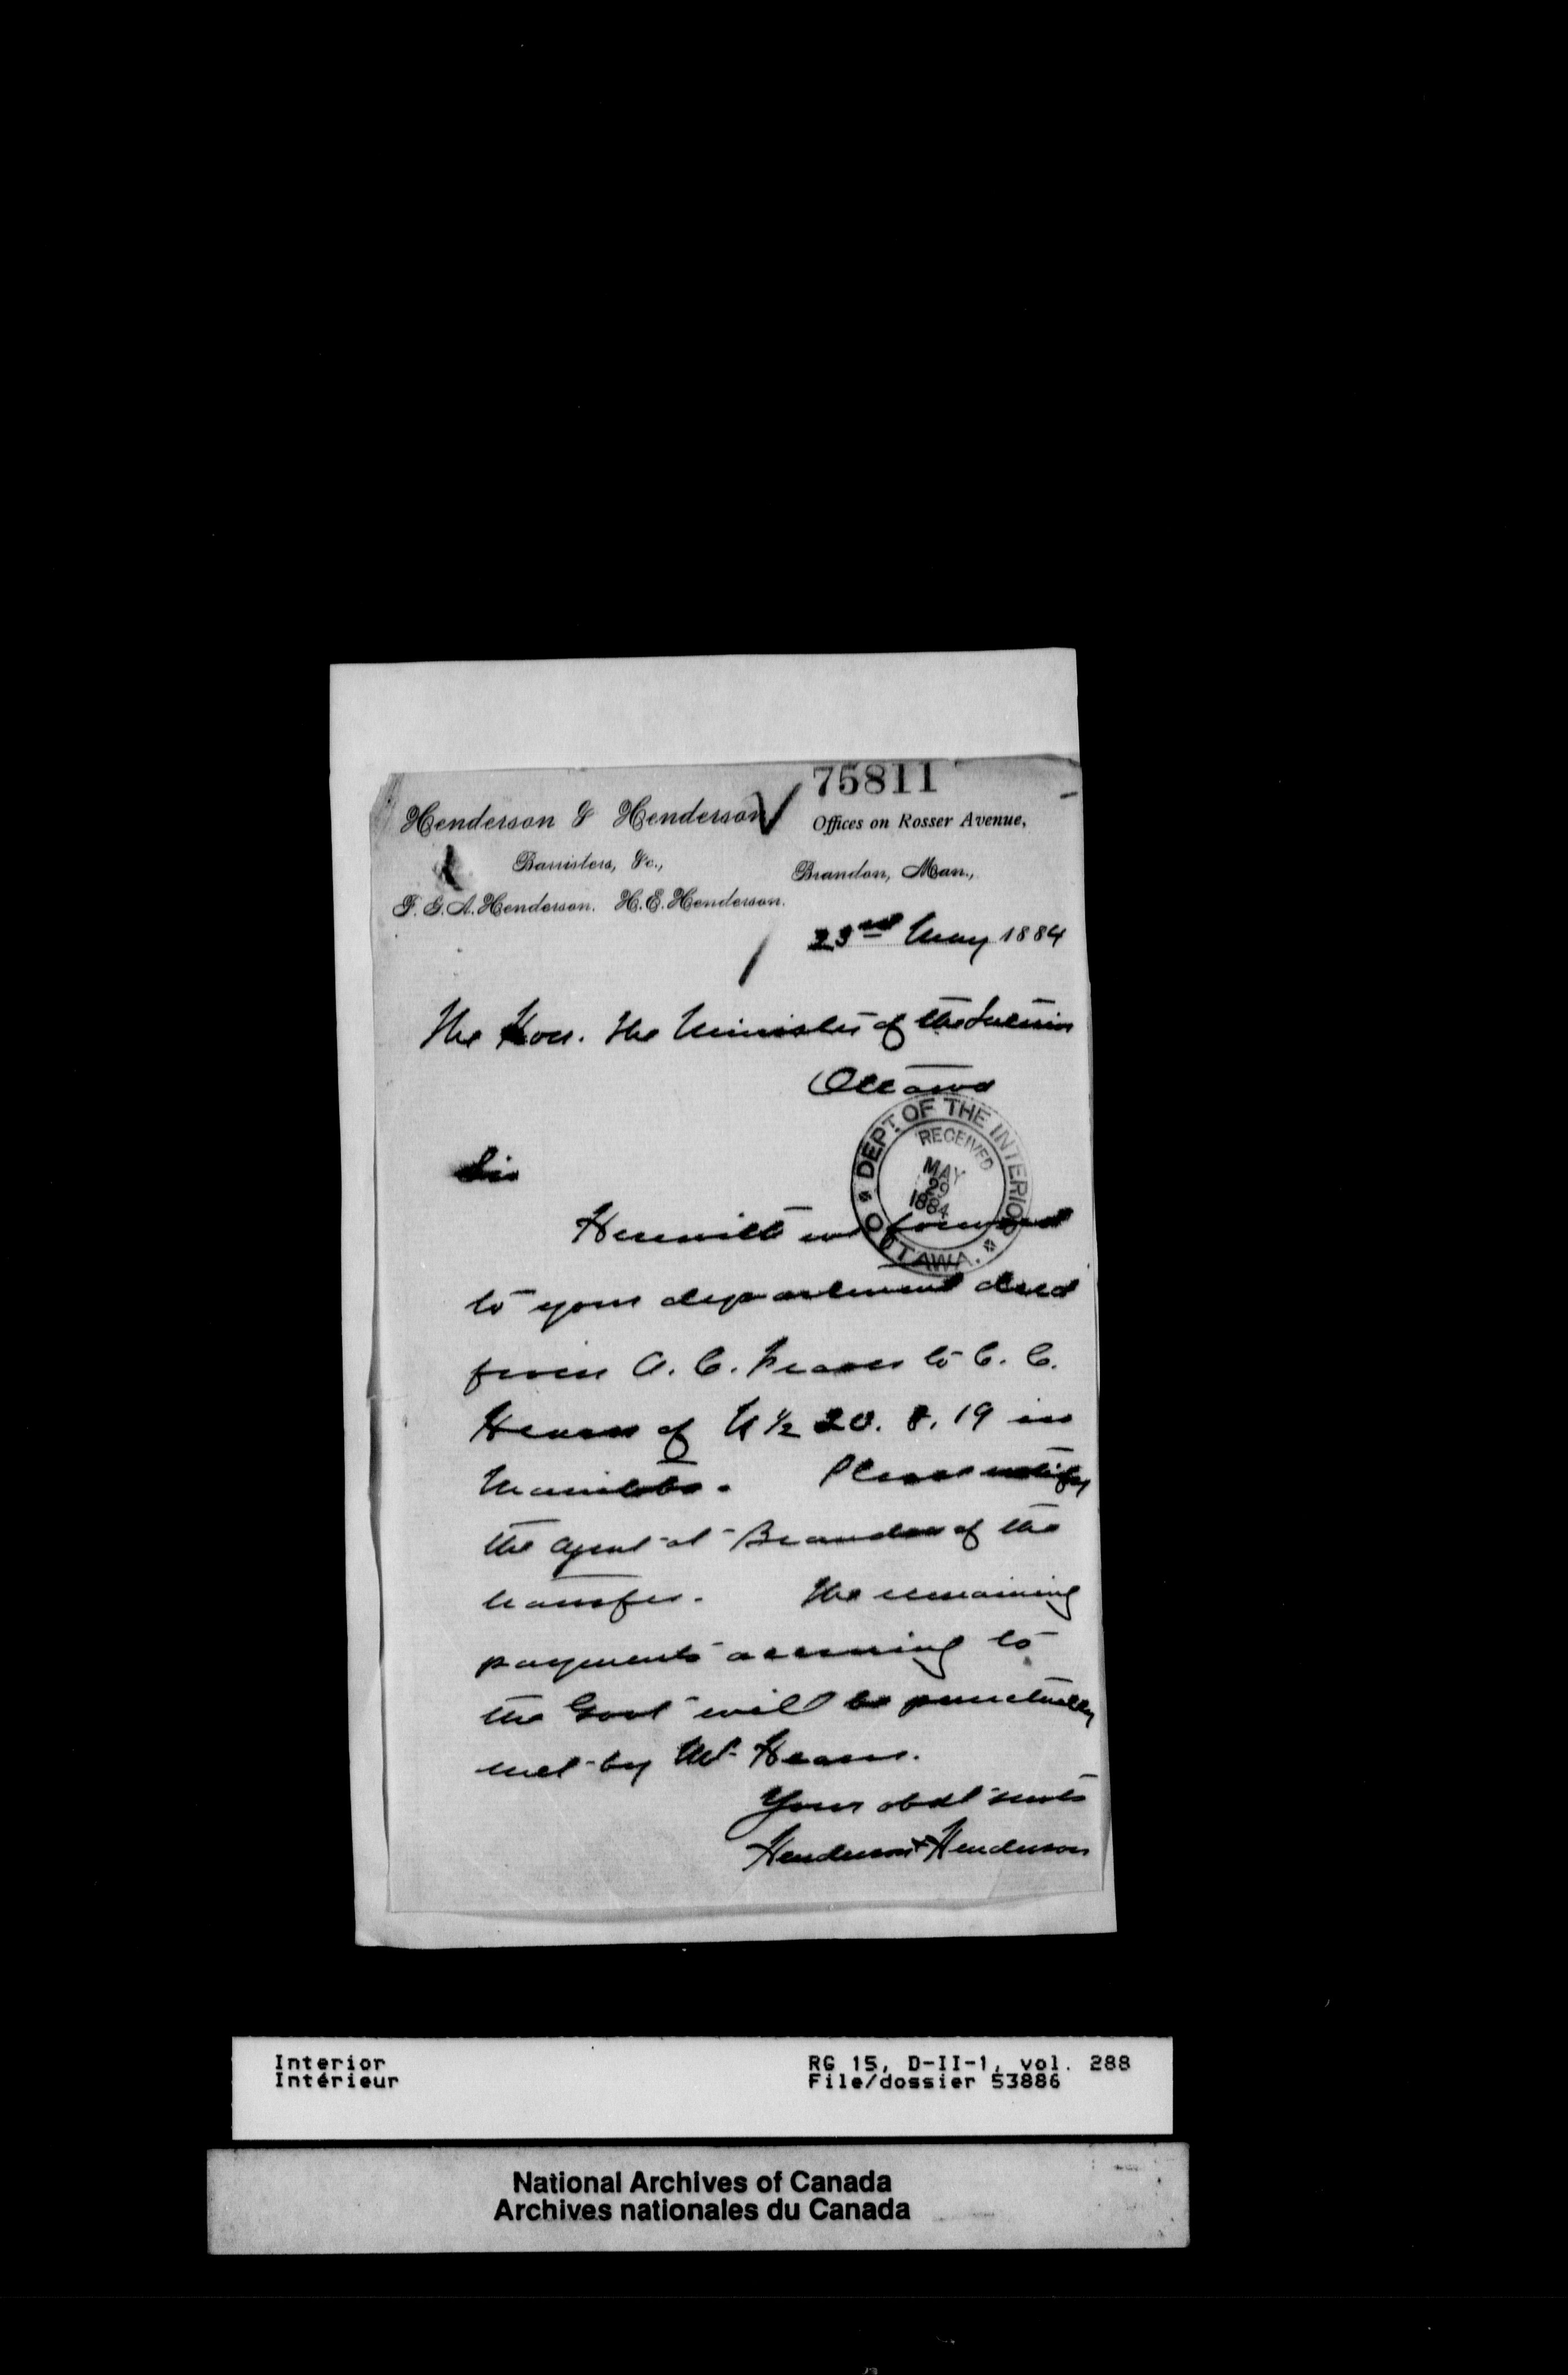 75811
Henderson & Henderson
Offices on Rosser Avenue,
Barristers, &c.,
Brandon, Man.,
F. G. A. Henderson. H. E. Henderson.
23rd May 1884
The Hon. The Minister of the Interior
Ottawa
DEPT. OF THE INTERIOR
RECEIVED
MAY
29
1884
OTTAWA.
Sir
Herewith we forward
to your department deed
from A. C. Fraser to C. C.
Hearn of N ½ 20. 8. 19 in
Manitoba. Please notify
the agent at Brandon of the
transfer. The remaining
payments accruing to
the Govt will be punctually
met by Mr. Hearn.
Your obdt servts
Henderson & Henderson
Interior
Intérieur
RG 15, D-II-1, vol. 288
File/dossier 53886
National Archives of Canada
Archives nationales du Canada